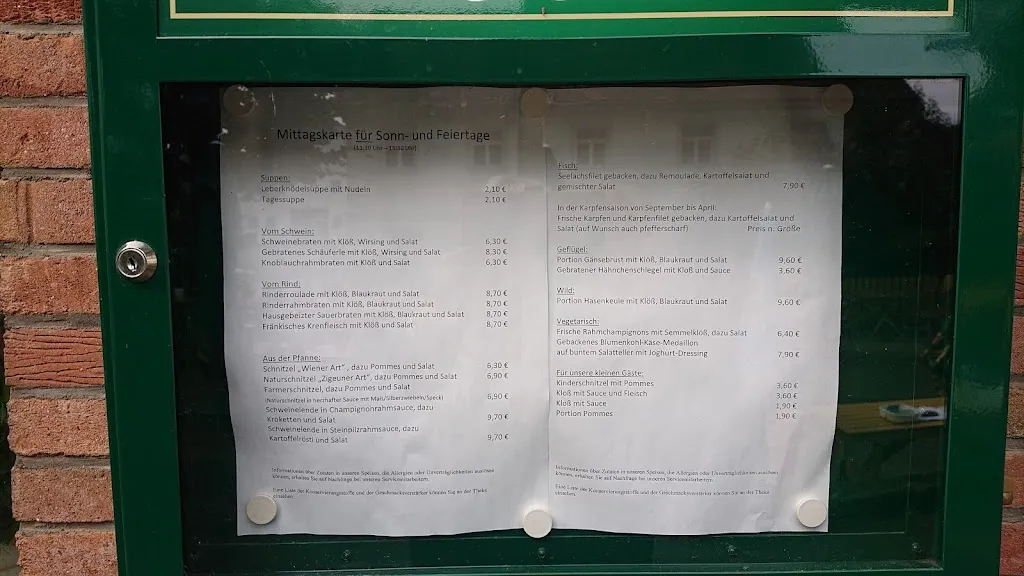 Mittagskarte für Sonn- und Feiertage
(11:30 Uhr –
Suppen:
Leberknödelsuppe mit Nudeln 2,10 €
Tagessuppe 2,10 €
Vom Schwein:
Schweinebraten mit Klöß, Wirsing und Salat 6,30 €
Gebratenes Schäuferle mit Klöß, Wirsing und Salat 8,30 €
Knoblauchrahmbraten mit Klöß und Salat 6,30 €
Vom Rind:
Rinderroulade mit Klöß, Blaukraut und Salat 8,70 €
Rinderrahmbraten mit Klöß, Blaukraut und Salat 8,70 €
Hausgebeizter Sauerbraten mit Klöß, Blaukraut und Salat 8,70 €
Fränkisches Krenfleisch mit Klöß und Salat 8,70 €
Aus der Pfanne:
Schnitzel „Wiener Art" , dazu Pommes und Salat 6,30 €
Naturschnitzel „Zigeuner Art", dazu Pommes und Salat 6,90 €
Farmerschnitzel, dazu Pommes und Salat
(Naturschnitzel in herzhafter Sauce mit Mais/Silberzwiebeln/Speck) 6,90 €
Schweinelende in Champignonrahmsauce, dazu
Kroketten und Salat 9,70 €
Schweinelende in Steinpilzrahmsauce, dazu
Kartoffelrösti und Salat 9,70 €
Informationen über Zutaten in unseren Speisen, die Allergien oder Unverträglichkeiten auslösen
können, erhalten Sie auf Nachfrage bei unseren Servicemitarbeitern.
Eine Liste der Konservierungsstoffe und der Geschmacksverstärker können Sie an der Theke
einsehen.
Fisch:
Seelachsfilet gebacken, dazu Remoulade, Kartoffelsalat und
gemischter Salat 7,90 €
In der Karpfensaison von September bis April:
Frische Karpfen und Karpfenfilet gebacken, dazu Kartoffelsalat und
Salat (auf Wunsch auch pfefferscharf) Preis n. Größe
Geflügel:
Portion Gänsebrust mit Klöß, Blaukraut und Salat 9,60 €
Gebratener Hähnchenschlegel mit Kloß und Sauce 3,60 €
Wild:
Portion Hasenkeule mit Klöß, Blaukraut und Salat 9,60 €
Vegetarisch:
Frische Rahmchampignons mit Semmelkloß, dazu Salat 6,40 €
Gebackenes Blumenkohl-Käse-Medaillon
auf buntem Salatteller mit Joghurt-Dressing 7,90 €
Für unsere kleinen Gäste:
Kinderschnitzel mit Pommes 3,60 €
Kloß mit Sauce und Fleisch 3,60 €
Kloß mit Sauce 1,90 €
Portion Pommes 1,90 €
Informationen über Zutaten in unseren Speisen, die Allergien oder Unverträglichkeiten auslösen
können, erhalten Sie auf Nachfrage bei unseren Servicemitarbeitern.
Eine Liste der Konservierungsstoffe und der Geschmacksverstärker können Sie an der Theke
einsehen.